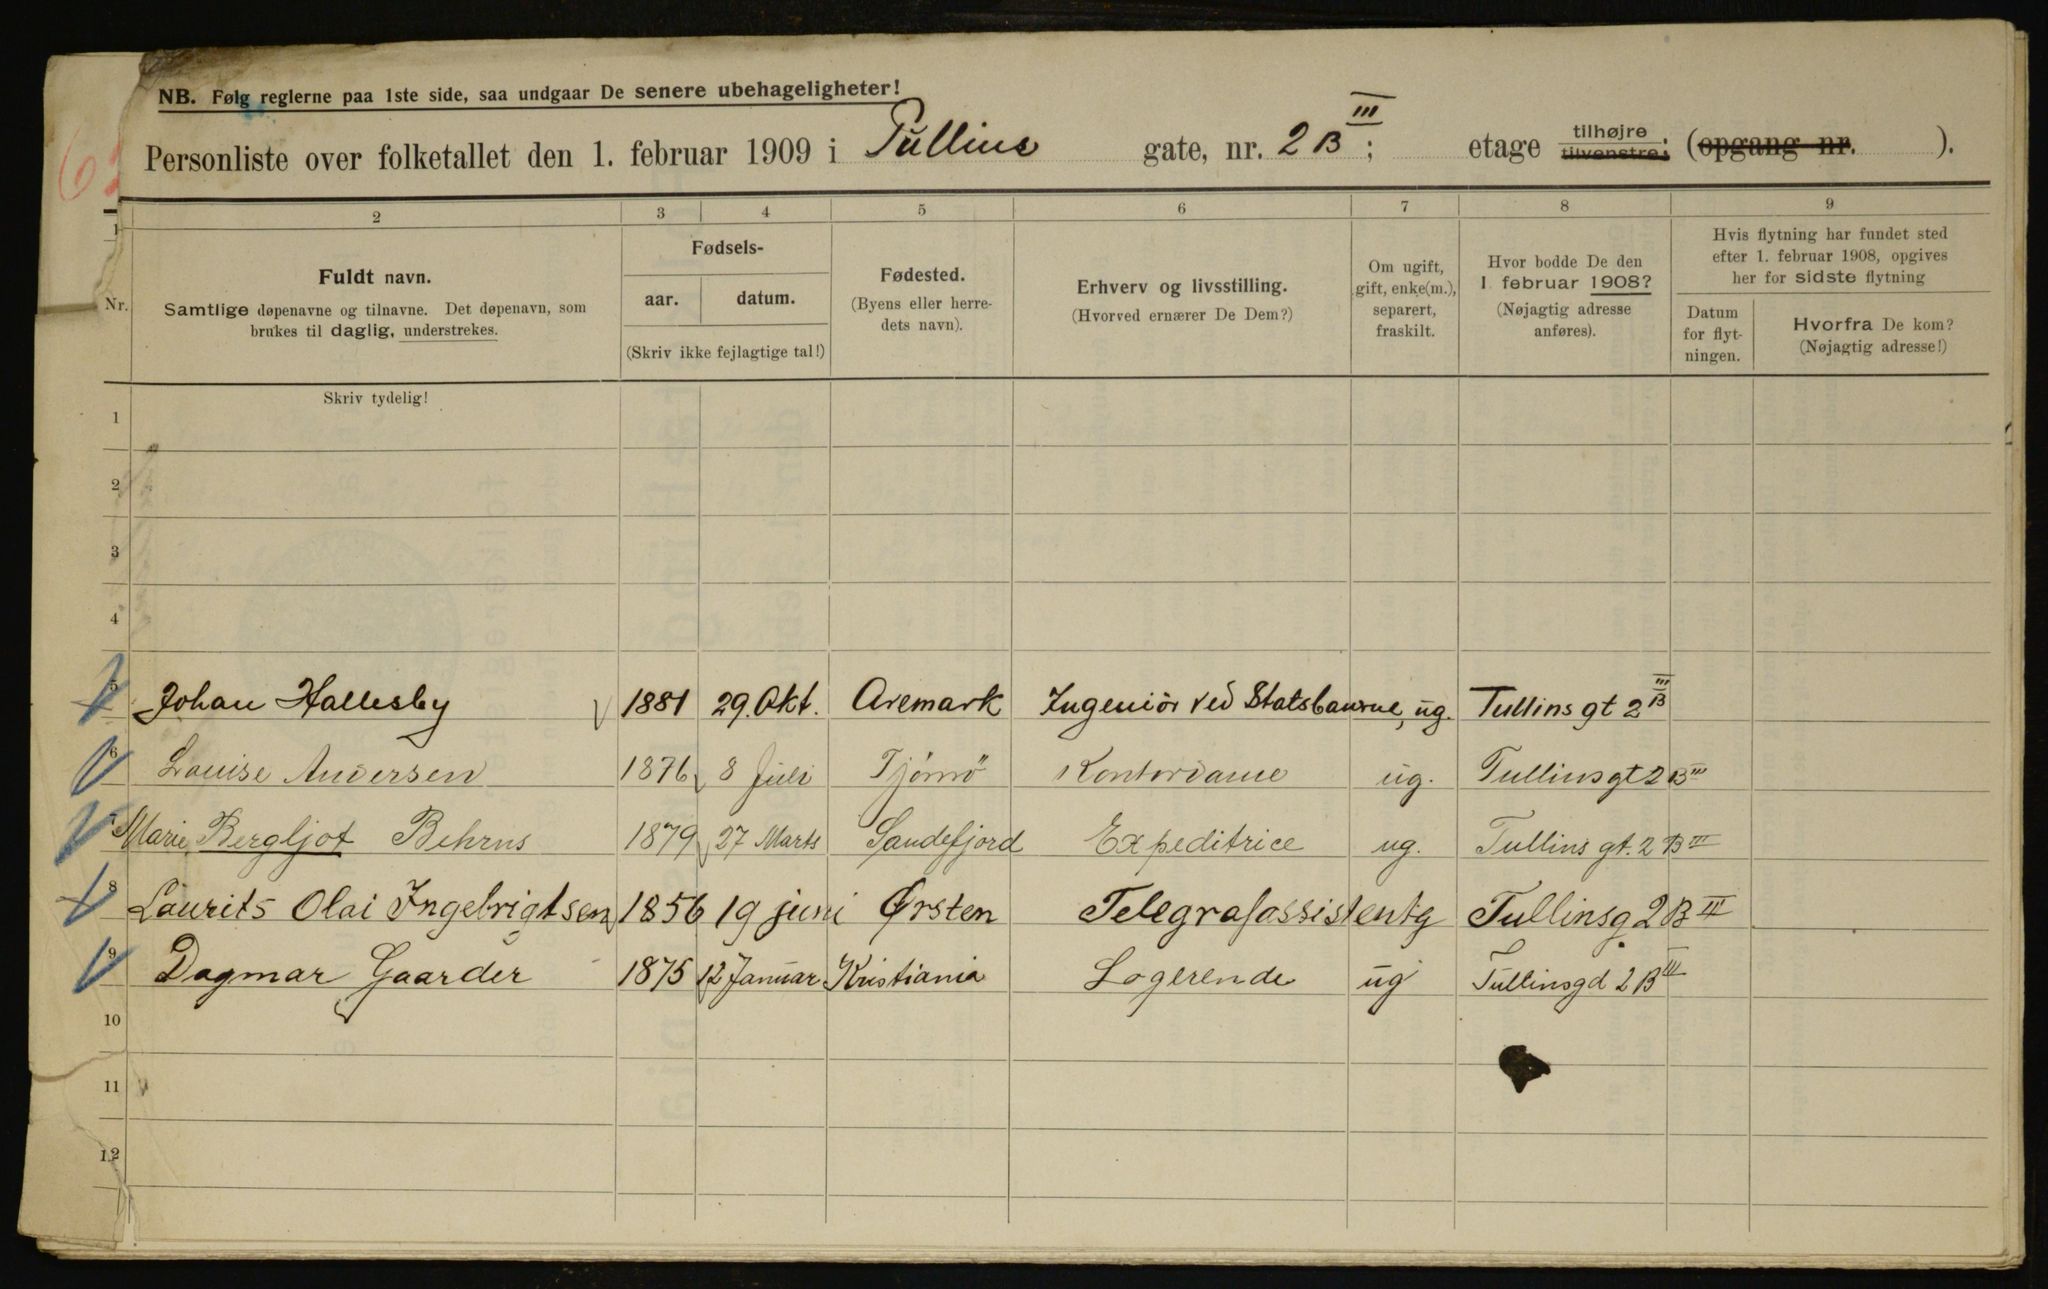 NB. Følg reglerne paa 1ste side, saa undgaar De senere ubehageligheter!
Personliste over folketallet den 1. februar 1909 i Tullins gate, nr. 2 B III; etage tilhøjre tilvenstre; (opgang nr. ).
1 2 3 4 5 6 7 8 9
Nr.
Fuldt navn.
Samtlige døpenavne og tilnavne. Det døpenavn, som
brukes til daglig, understrekes.
Fødsels-
aar. datum.
(Skriv ikke fejlagtige tal!)
Fødested.
(Byens eller herre-
dets navn).
Erhverv og livsstilling.
(Hvorved ernærer De Dem?)
Om ugift,
gift, enke(m.),
separert,
fraskilt.
Hvor bodde De den
1. februar 1908?
(Nøjagtig adresse
anføres).
Hvis flytning har fundet sted
efter 1. februar 1908, opgives
her for sidste flytning
Datum
for flyt-
ningen.
Hvorfra De kom?
(Nøjagtig adresse!)
Skriv tydelig!
1
2
3
4
5 Johan Hallesby 1881 29. Okt. Aremark Ingeniør ved Statsbanerne, ug. Tullins gt 2 B III
6 Louise Andersen 1876 8 Juli Tjømø Kontordame ug. Tullinsgt 2 B III
7 Marie Bergljot Behrns 1879 27 Marts Sandefjord Expeditrice ug. Tullins gt. 2 B III
8 Laurits Olai Ingebrigtsen 1856 19 juni Ørsten Telegrafassistent ug Tullinsg 2 B III
9 Dagmar Gaarder 1875 12 Januar Kristiania Logerende ug Tullinsgd 2 B III
10
11
12